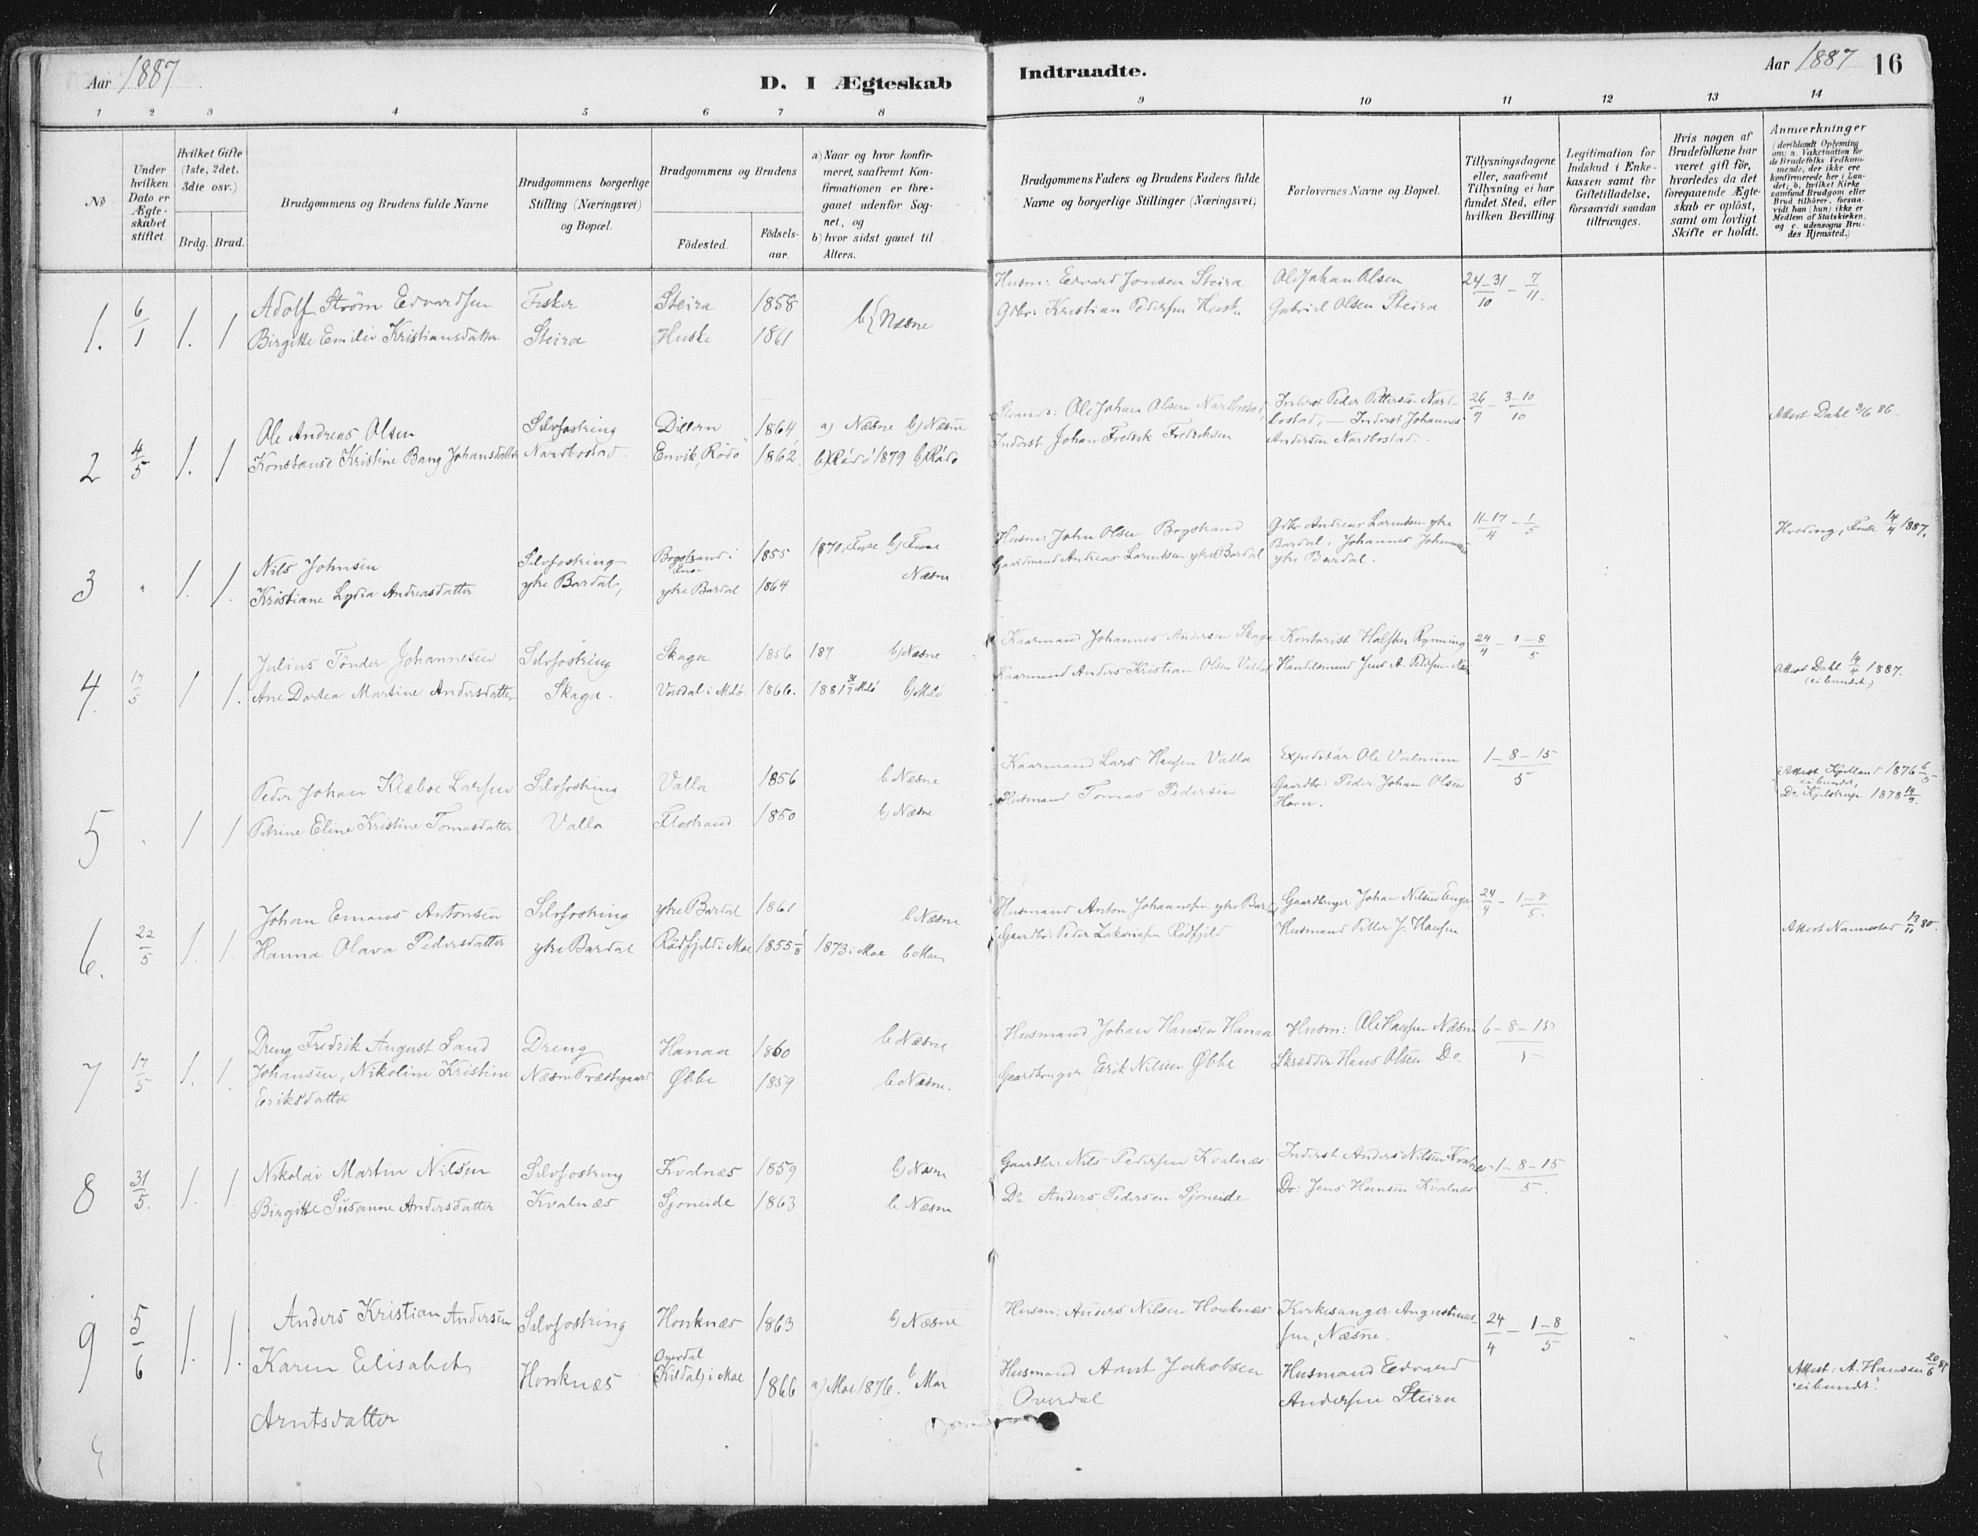 Aar 1887
D. I Ægteskab
Indtraadte.
Aar 1887 16
1 2 3 4 5 6 7 8 9 10 11 12 13 14
No
Under hvilken Dato er Ægteskabet stiftet.
Hvilket Gifte (1ste, 2det, 3die osv.)
Brdg. Brud.
Brudgommens og Brudens fulde Navne
Brudgommens borgerlige Stilling (Næringsvei) og Bopæl.
Brudgommens og Brudens
Födested.
Födsels-aar.
a) Naar og hvor konfirmeret, saafremt Konfirmationen er foregaaet udenfor Sognet, og
b) hvor sidst gaaet til Alters.
Brudgommens Faders og Brudens Faders fulde Navne og borgerlige Stillinger (Næringsvei)
Forlovernes Navne og Bopæl.
Tillysningsdagene eller, saafremt Tillysning ei har fundet Sted, efter hvilken Bevilling.
Legitimation for Indskud i Enkekassen samt for Giftetilladelse, forsaavidt saadan tiltrænges.
Hvis nogen af Brudefolkene har været gift før, hvorledes da det foregaaende Ægteskab er oplöst, samt om lovligt Skifte er holdt.
Anmærkninger
(deriblandt Oplysning om: a. Vakcination for de Brudefolks Vedkommende, der ikke ere konfirmerede her i Landet; b. hvilket Kirkesamfund Brudgom eller Brud tilhörer, forsaavidt han (hun) ikke er Medlem af Statskirken, og c. udensogns Brudes Hjemsted.)
1. 6/1 1. 1 Adolf Strøm Edvardsen Fisker Steira 1858 b{Næsne Husm: Edvard Jonsen Steira Ole Johan Olsen 24-31/10 - 7/11.
Birgitte Emilie Kristiansdatter Steira Huske 1861 Gdbr: Kristian Pedersen Huske Gabriel Olsen Steira
2 4/5 1. 1 Ole Andreas Olsen Selvfostring 1864 a) Næsne b) Næsne Ole Johan Olsen Nardbostad, Inderst Peder Pettersen Nardbostad, – Inderst Johannes Andersen Nardbostad. 3-10/10 Attest Dahl 3/6 86.
Konstanse Kristine Bang Johansdatter Nardbostad. Envik, Rødø 1862. Rødø 1879 b) Rødø Inderst Johan Fredrik Fredriksen
3 " 1. 1. Nils Johnsen Selvfostring Bogstrand i 1855 1870, b) Husm: John Olsen Bogstrand Gdbr Andreas Larentsen ytre Bardal, Johannes ytre Bardal. 11-17/4 - 1/5 14/4 1887.
Kristiane Lydia Andreasdatter ytre Bardal, ytre Bardal 1864 Næsne Gaardmand Andreas Larentsen ytre Bardal
4. 17/5 1 1. Julius Tønder Johannesen Selvfostring Skaga 1856 187 b) Næsne Kaarmand Johannes Andersen Skaga Kontorist Halfsten Rynning 24/4 - 1-8/5 Attest Dahl 14/4 1887.
(eibundet)
Ane Dortea Martine Andersdatter Skaga. i Melø. 1866. 1881 Melø b) Melø Kaarmand Anders Kristian Olsen Handelsmand Jens A. Petersen
5 " 1 1 Peder Johan Klæboe Larsen Selvfostring Valla 1856 b Næsne Kaarmand Lars Hansen Valla Expeditør Ole Valnum 1-8-15/5 1876
Petrine Eline Kristine Tomasdatter Valla Flostrand 1850 b) Næsne Husmand Tomas Pedersen Gaardbr: Peder Johan Olsen Horn. Do 1878
6. 22/5 1. 1. Johan Emaus Antonsen Selvfostring ytre Bardal 1861 b Næsne Husmand Anton Johannesen ytre Bardal Gaardbruger Johan Nilsen Enge 24/4 - 1-8/5. Attest
Hanna Olava Pedersdatter ytre Bardal Rødfjeld i Moe 1855 1873 i Moe b Moe Gaardbr: Peder Zakariasen Rødfjeld Husmand Petter J. Hansen
7 17/5 1. 1. Dreng Fredrik August Sand Dreng Hanaa 1860 b Næsne Husmand Johan Hansen Hanaa Husm: Ole Hansen Næsne 6-8-15/5
Johansen, Nikoline Kristine Næsne Præstegaard Øbbe 1859 b Næsne. Gaardbruger Erik Nilsen Øbbe Skrædder Hans Olsen Do.
Eriksdatter
8 31/5. 1. 1. Nikolai Martin Nilsen Selvfostring Kvalnæs 1859 b) Næsne Gaardbr: Nils Pedersen Kvalnæs Inderst Anders Nilsen Kvalnæs 1-8-15/5.
Birgitte Susanne Andersdatter Kvalnæs Sjoneide 1863 b Næsne Do Anders Pedersen Sjoneide Do: Jens Hansen Kvalnæs
9 5/6 1. 1. Anders Kristian Andersen Selvfostring Honknæs 1863 b) Næsne Husm: Anders Nilsen Honknæs Kirkesanger Augustinussen, Næsne. 24/4 - 1-8/5 " "
Karen Elisabet Honknæs Overdal (Kildal) i Moe 1866 a) Moe 1876. b Moe Husmand Arnt Jakobsen Overdal Husmand Edvard Andersen Steira Attest: A. Hansen 20/6 87
"eibundt".
Arntsdatter